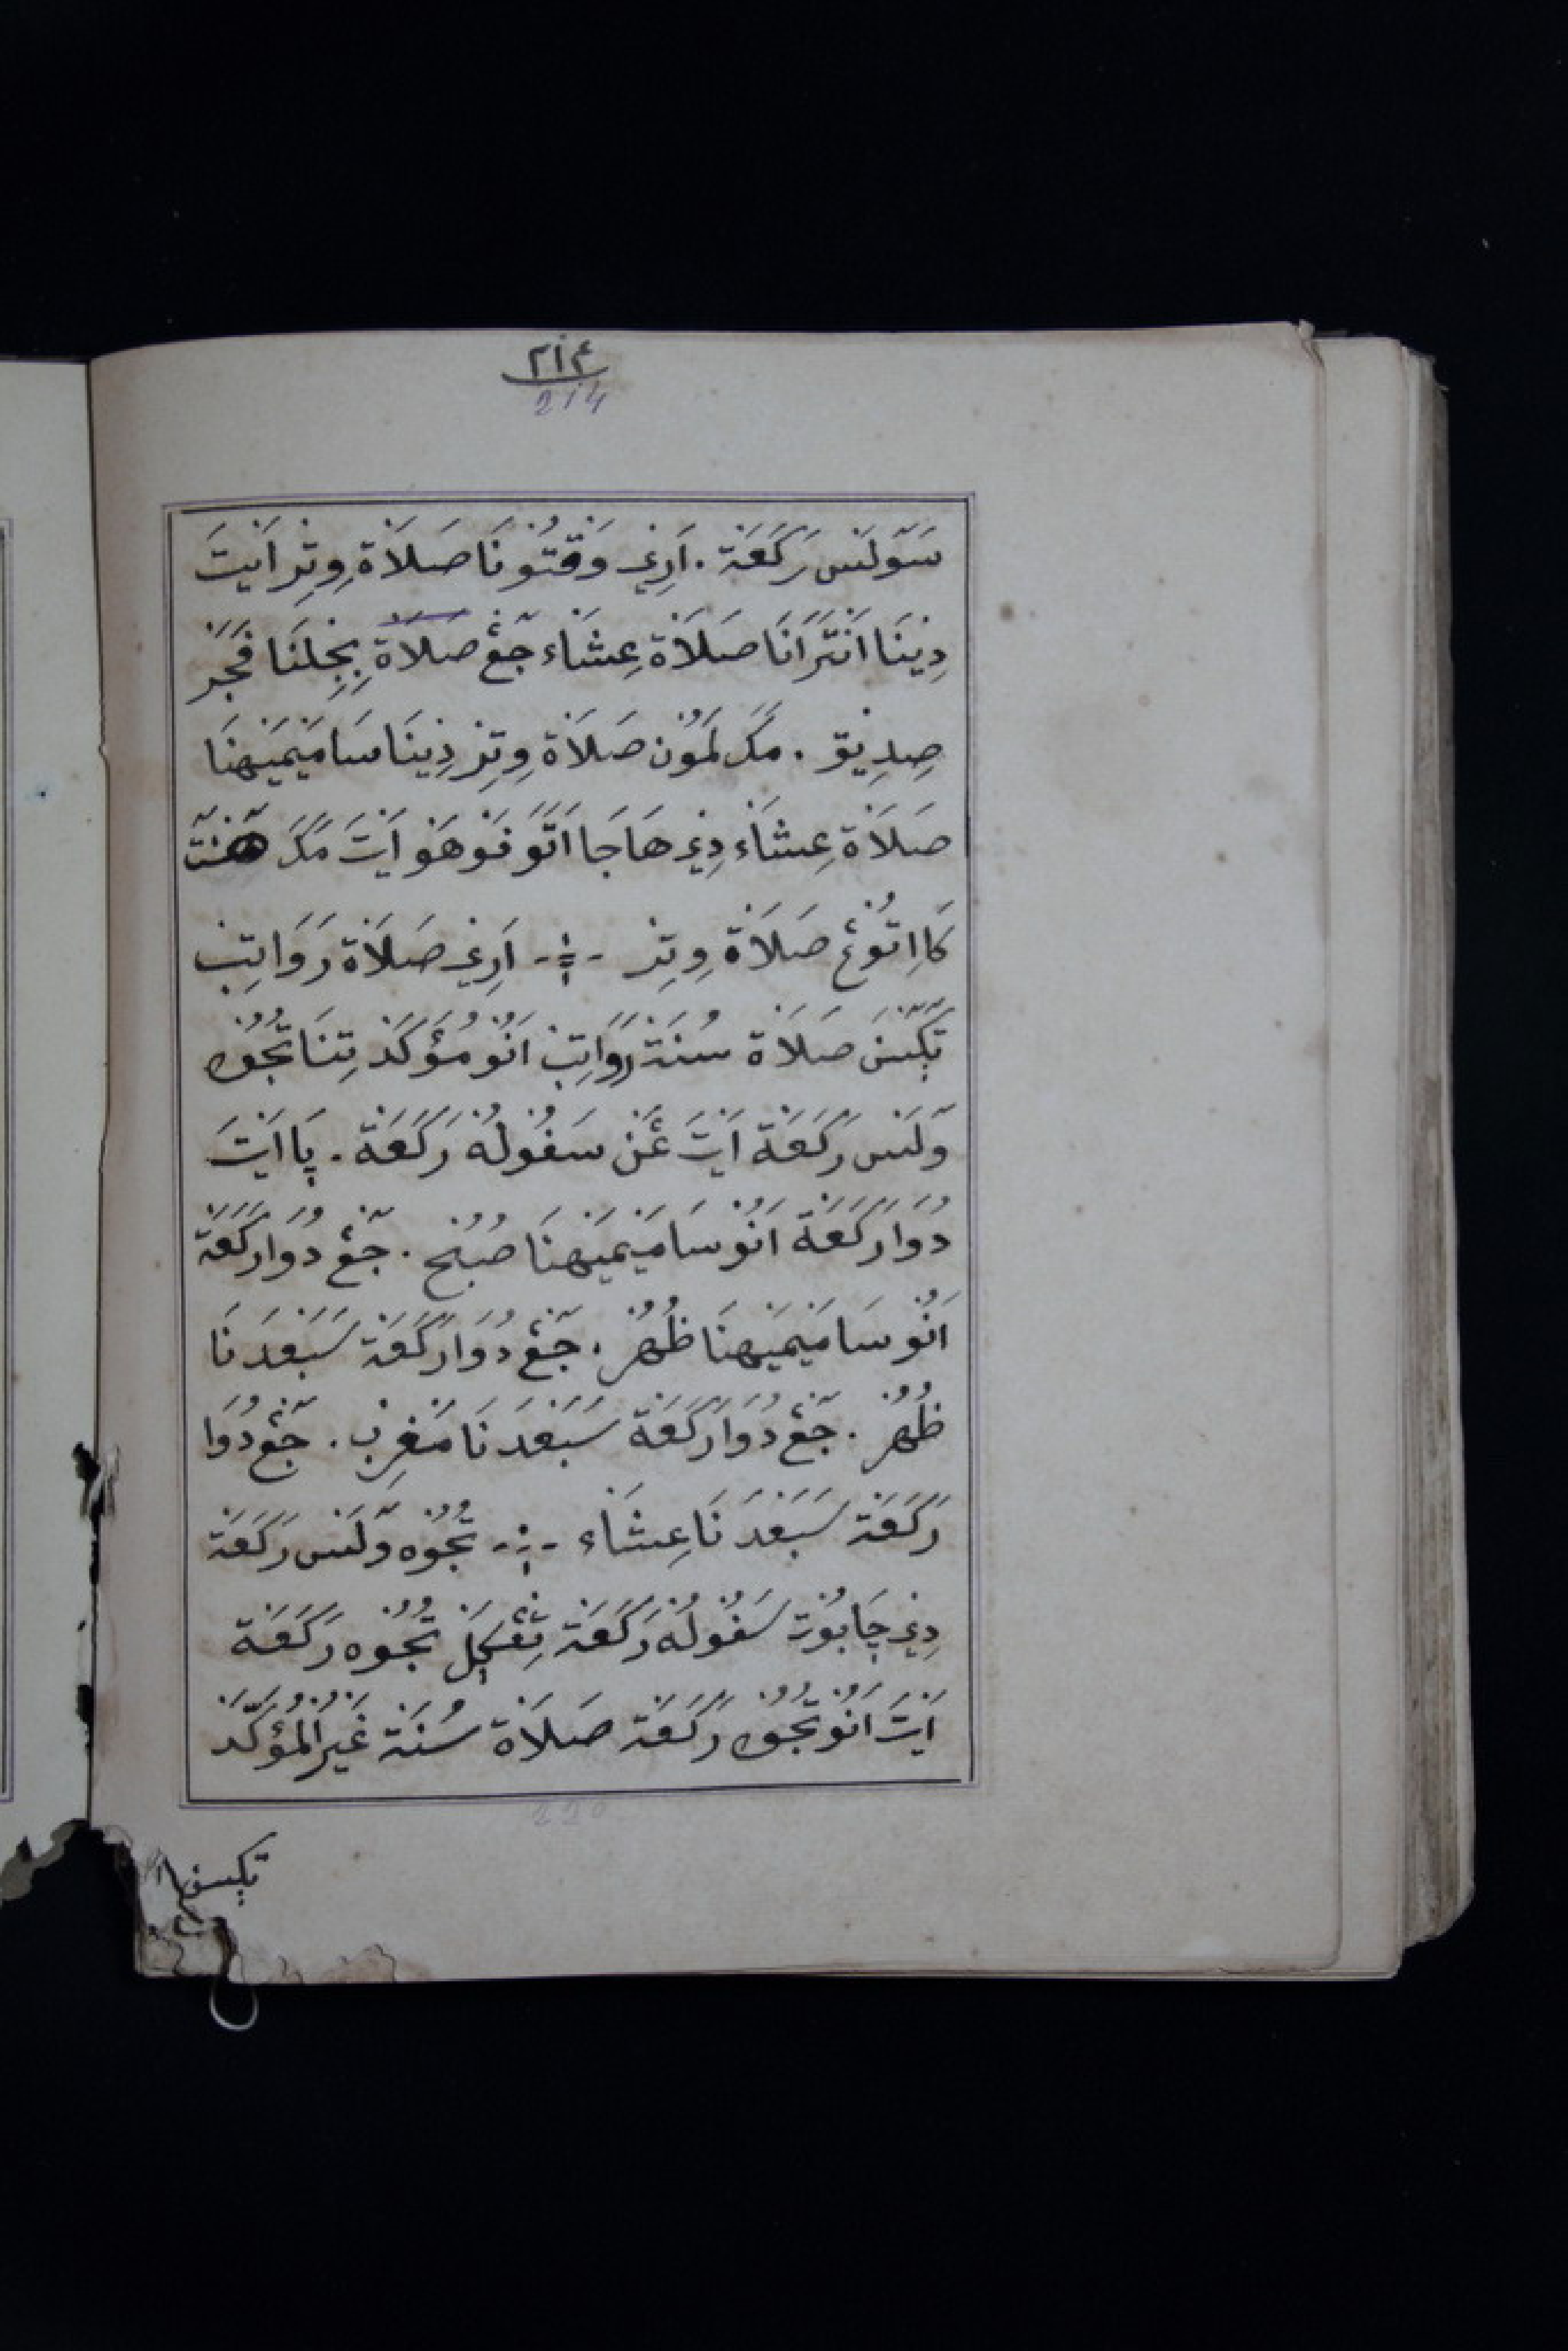 ٢١٤
214
سَوۤلَسْ رَكَعَةْ . اَرِغِ وَقْتُوْنَا صَلَاةْ وِتِرْ اَيْتَ
دِيْنَا اَنْتَرَانَا صَلَاةْ عِشَاءْ جَڠْ صَلَاةْ بِجِلْنَا فَجَرْ
صِدِيْق . مَكَ لَمُوْن صَلَاةْ وِتِرْ دِيْنَا سَامَيْمَيْهْنَا
صَلَاةْ عِشَاءْ دِيْ هَاجَا اَتَوَ فَوْهَوْ اَيْتَ مَكَ
كَا اِتُوْڠْ صَلَاةْ وِتِرْ -÷- اَرِغِ صَلَاةْ رَوَاتِبْ
تَگَسْنَ صَلَاةْ سُنَةْ رَوَاتِبْ اَنُوْ مُؤَكَدْ تِنَا تُجُوْه
وَلَسْ رَكَعَةْ اَيْتَ عَنْ سَفُوْلُهْ رَكَعَةْ . ڽَا اَيْتَ
دُوَا رَكَعَةْ اَنُوْ سَامَيْمَيْهْنَا صُبُحْ . جَڠْ دُوَا رَكَعَةْ
اَنُوْ سَامَيْمَيْهْنَا ظُهُرْ . جَڠْ دُوَا رَكَعَةْ سَبَعْدَنَا
ظُهُرْ . جَڠْ دُوَا رَكَعَةْ سَبَعْدَنَا مَغْرِبْ . جَڠْ دُوَا
رَكَعَةْ سَبَعْدَنَا عِشَاءْ -÷- تُجُوْه وَلَسْ رَكَعَةْ
دِيْ چَابُوْتْ سَفُوْلُهْ رَكَعَةْ تِڠْكَلْ تُجُوْه رَكَعَةْ
اَيْتَ اَنُوْ تُجُوْه رَكَعَةْ صَلَاةْ سُنَةْ غَيْرُ الْمُؤَكَّدْ
220
تَگَسْنَ